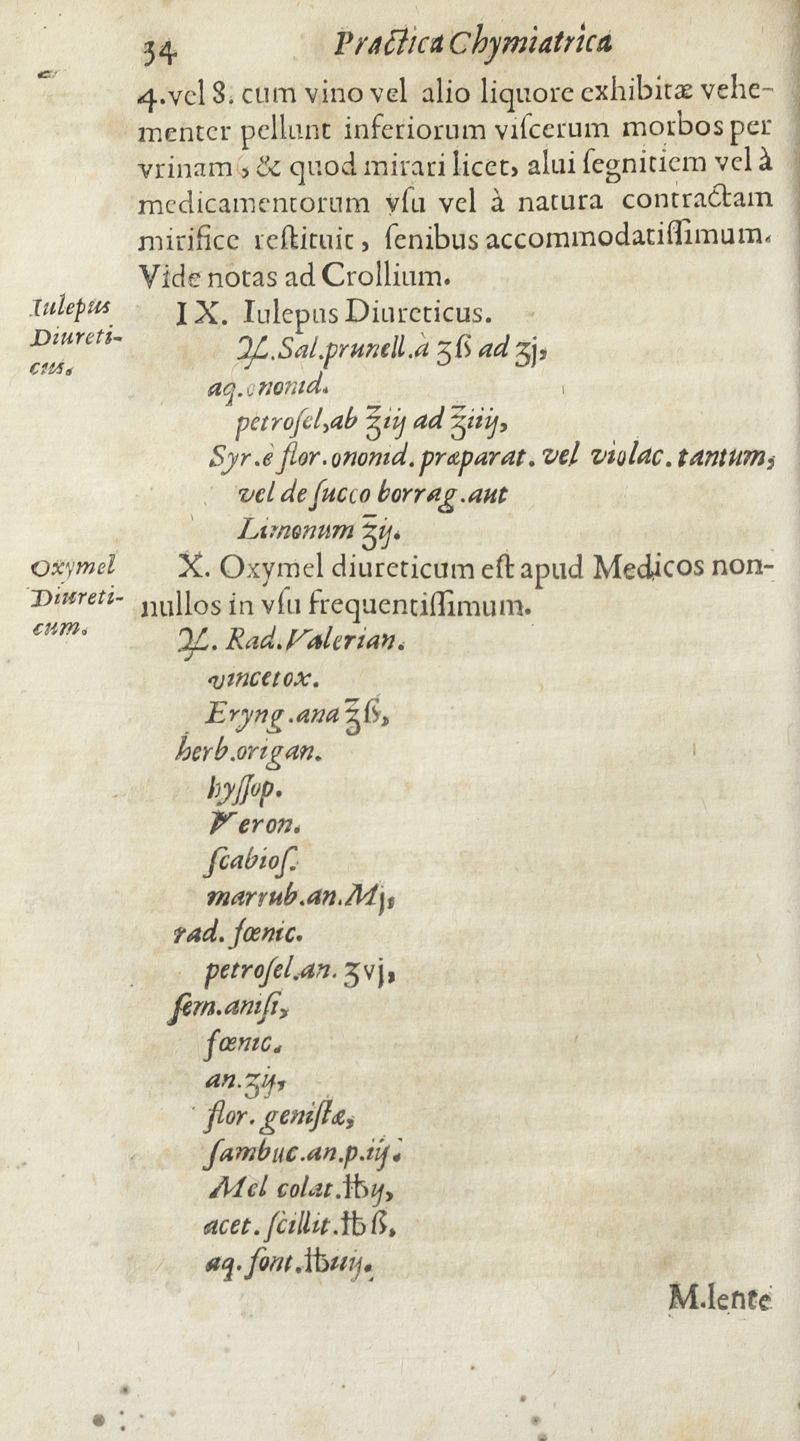 34 Practica Chymiatrica
4.vel 8. cum vino vel alio liquore exhibitæ vehe-
menter pellunt inferiorum viſcerum morbos per
vrinam, & quod mirari licet, alui ſegnitiem vel à
medicamentorum vſu vel à natura contractam
mirifice reſtituit, ſenibus accommodatiſſimum.
Vide notas ad Crollium.
Iulepus
Diureti-
cus.
IX. Iulepus Diureticus.
℞. Sal.prunell.à ʒß ad ʒj,
aq. onomd.
petroſel,ab ℥iij ad ℥iiij,
Syr.è flor.onomd.præparat. vel violac.tantum,
vel de ſucco borrag.aut
Limonum ℥ij.
Oxymel
Diureti-
cum.
X. Oxymel diureticum eſt apud Medicos non-
nullos in vſu frequentiſſimum.
℞. Rad.Valerian.
vincetox.
Eryng.ana ℥ß,
herb.origan.
hyſſop.
Veron.
ſcabioſ.
marrub.an.Mj,
rad.fœnic.
petroſel.an. ʒvj,
ſem.aniſi,
fœnic.
an.ʒij,
flor. geniſtæ,
ſambuc.an.p.iij.
Mel colat.℔ij,
acet.ſcillit.℔ß,
aq.font.℔iiij.
M.lente